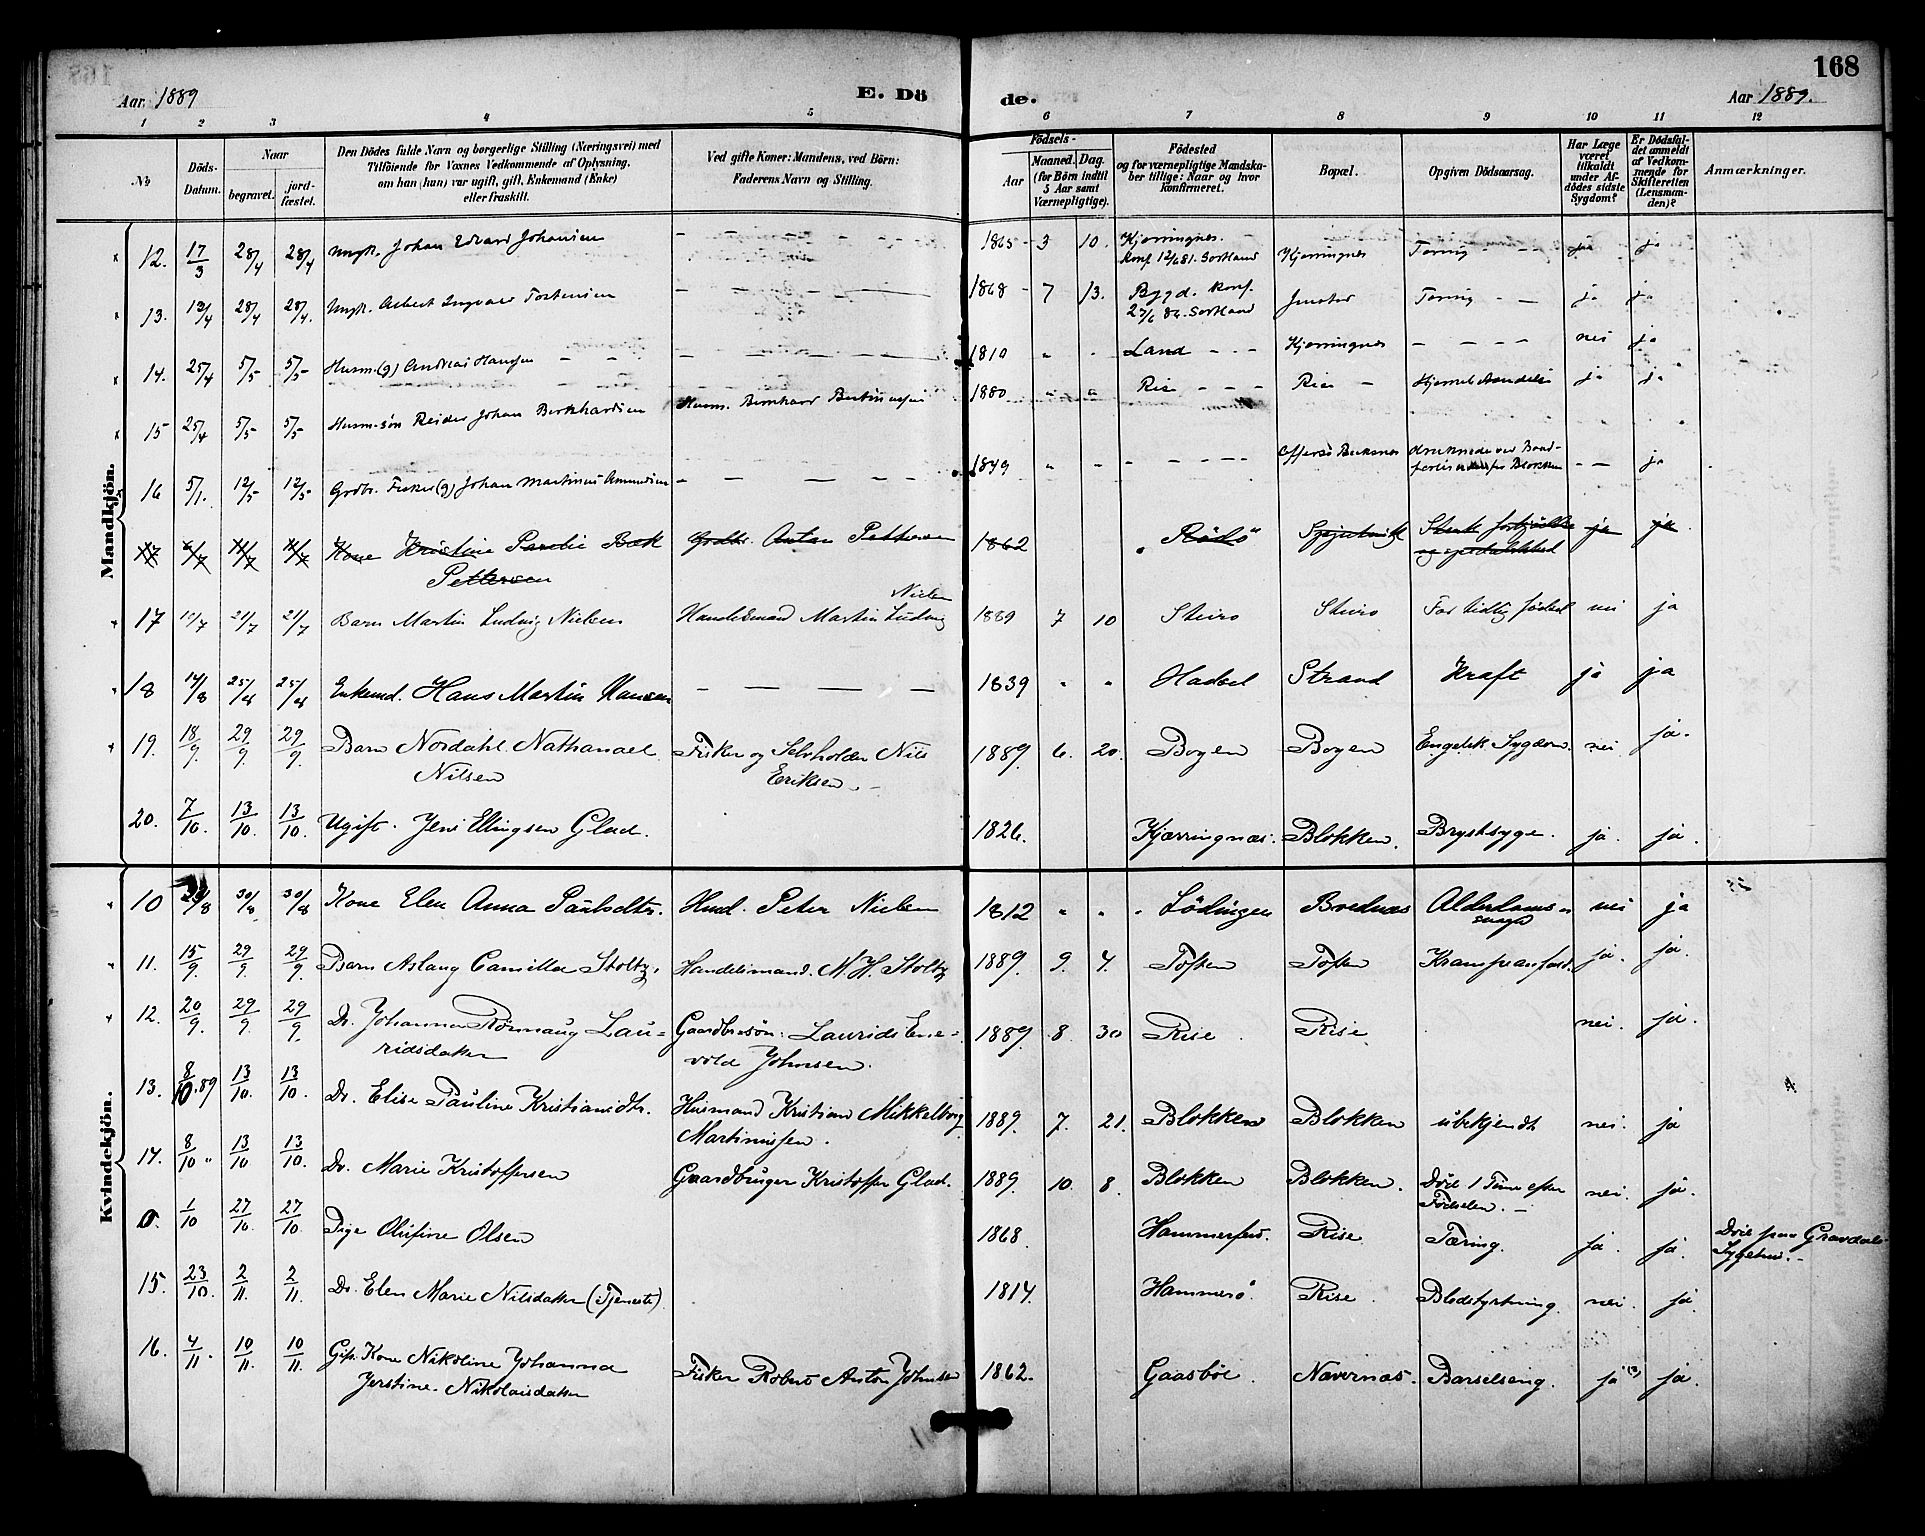 168
Aar 1889
E. Dö
de.
Aar 1889.
1 2 3 4 5 6 7 8 9 10 11 12
No
Döds-Datum.
Naar
begravet.
jord-fæstet.
Den Dödes fulde Navn og borgerlige Stilling (Næringsvei) med
Tilföiende for Voxnes Vedkommende af Oplysning,
om han (hun) var ugift, gift, Enkemand (Enke)
eller fraskilt.
Ved gifte Koner: Mandens, ved Börn:
Faderens Navn og Stilling.
Födsels-
Aar
Maaned. Dag.
(for Börn indtil
5 Aar samt
Værnepligtige).
Födested
og for værnepligtige Mandska-
ber tillige: Naar og hvor
konfirmeret.
Bopæl.
Opgiven Dödsaarsag.
Har Læge
været
tilkaldt
under Af-
dödes sidste
Sygdom?
Er Dödsfal-
det anmeldt
af Vedkom-
mende for
Skifteretten
(Lensman-
den)?
Anmærkninger.
Mandkjön.
12. 17/3 28/4 28/4 Ungk. Johan Edvard Johansen 1865 3 10. Kjerringnes. Kjerringnes Tæring ja ja
Konf. 12/6 81. Sortland
13. 13/4 28/4 28/4. Ungk. Albert Ingvald Tortensen 1868 7 13. Bygd. Konf. Tæring ja ja
Sortland
14. 25/4 5/5 5/5 Husm. (g) Andreas Hansen 1810 " " Land Kjerringnes nei ja
15 25/4 5/5 5/5 Husm.søn Reider Johan Bernhardsen Husm. Bernhard 1880 " " Rise Rise ja ja
16 5/1. 12/5 12/5 Grdbr. Fisker (g) Johan Martinus Amundsen 1849 " druknede ved Baad- ja
Blokken
Kone Kristine Bak Grdbr. Anton Pettersen 1862 " Rödö ja ja
Pettersen
17 21/7 21/7 Barn Martin Ludvig Nielsen Handelsmand Martin Ludvig Nielsen 1889 7 10 Steiro Steiro For tidlig födsel nei ja
18 14/8 25/8 25/8 Enkemd. Hans Martin Hansen 1839 " " Hadsel Strand Kraft ja ja
19. 18/9. 29/9. 29/9. Barn Nordahl Nathanael Fisker og Selvholder Nils 1889. 6. 20. Bogen Bogen Engelsk Sygdom. nei ja.
Nilsen Eriksen.
20. 7/10. 13/10. 13/10. Ugift. Jens Ellingsen Glad. 1826. Kjærringnæs. Blokken. Brystsyge. ja. ja.
Kvindekjön.
10 30/8 30/8 Kone Elen Anna Paulsdtr. Hmd. Peter Nielsen 1812 " " Lödingen Brednæs Alderdoms- nei ja
svage
11. 15/9. 29/9. 29/9. Barn Aslaug Camilla Stoltz. Handelsmand. N. H. Stoltz 1889. 9. 4. Toften Toften Krampeanfald. ja. ja.
12. 20/9. 29/9. 29/9. Do. Johanna Rönnaug Lau- Gaardbr.søn. Laurids Ene- 1889. 8. 30 Rise Rise. nei. ja.
ridsdatter vold Johnsen.
13. 8/10.89 13/10. 13/10. Do. Elise Pauline Kristiansdtr. Husmand Kristian Mikkelborg 1889. 7. 21. Blokken Blokken ubekjendt nei. ja
Martinussen.
14. 8/10 " 13/10. 13/10. Do. Marie Kristoffersen Gaardbruger Kristoffer Glad. 1889. 10. 8. Blokken Blokken. Död 1 Time efter nei. ja.
Födselen.
0. 1/10 27/10. 27/10. Pige Olufine Olsen 1868. Hammerfest. Rise. Tæring. ja. ja. Död paa Gravdals
Sygehus.
15. 23/10. 2/11. 2/11. Do. Elen Marie Nilsdatter (Tjeneste) 1814. Hammerö Rise. Blodstyrtning. nei. ja.
16. 4/11. 10/11. 10/11. Gift Kone Nikoline Johanna Fisker Robert Anton Johnsen 1862. Gaasböl. Navernæs. Barselseng. ja (?) ja.
Jerstine Nikolaisdatter